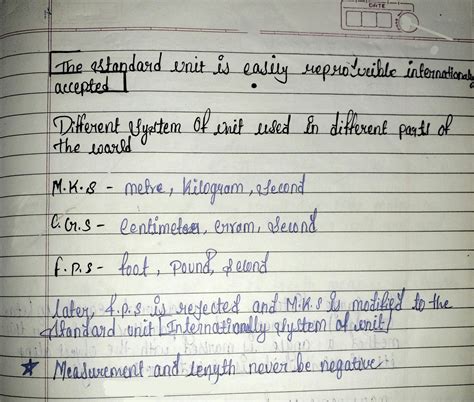 DATE
The standard unit is easily reproducible internationally
accepted
Different system of unit used in different parts of
the world
M.K.S - metre, kilogram, second
C.G.S - Centimeter, gram, second
F.P.S - foot, pound, second
Later, F.P.S is rejected and M.K.S is modified to the
standard unit [Internationally system of unit]
★ Measurement and length never be negative.